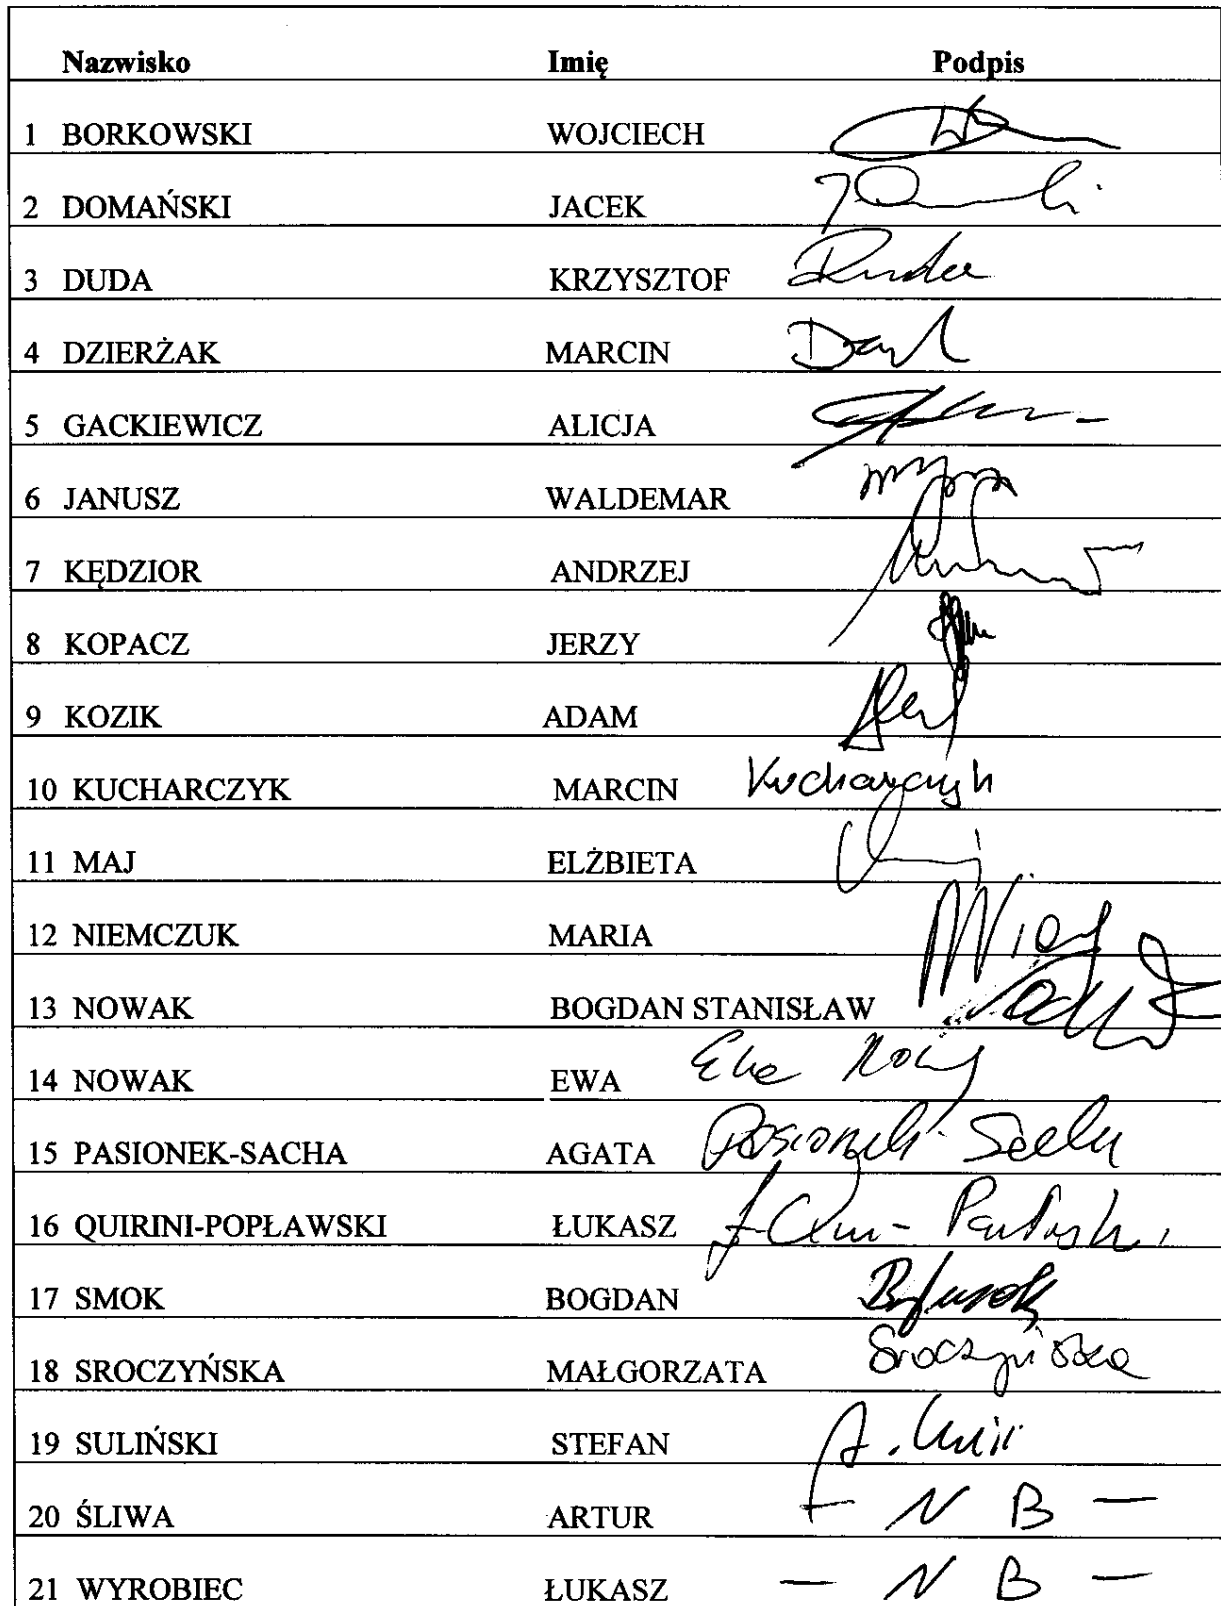 Nazwisko Imię Podpis
1 BORKOWSKI WOJCIECH
2 DOMAŃSKI JACEK
3 DUDA KRZYSZTOF Duda
4 DZIERŻAK MARCIN
5 GACKIEWICZ ALICJA
6 JANUSZ WALDEMAR
7 KĘDZIOR ANDRZEJ
8 KOPACZ JERZY
9 KOZIK ADAM
10 KUCHARCZYK MARCIN Kucharczyk
11 MAJ ELŻBIETA
12 NIEMCZUK MARIA
13 NOWAK BOGDAN STANISŁAW
14 NOWAK EWA Ewa Nowak
15 PASIONEK-SACHA AGATA Pasionek-Sacha
16 QUIRINI-POPŁAWSKI ŁUKASZ
17 SMOK BOGDAN
18 SROCZYŃSKA MAŁGORZATA Sroczyńska
19 SULIŃSKI STEFAN
20 ŚLIWA ARTUR - N B -
21 WYROBIEC ŁUKASZ - N B -